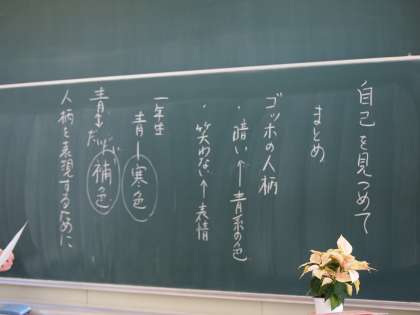 自己を見つめて
まとめ
ゴッホの人柄
・暗い←青系の色
・笑わない←表情
一年生
青―寒色
青もだいだい 補色
人柄を表現するために